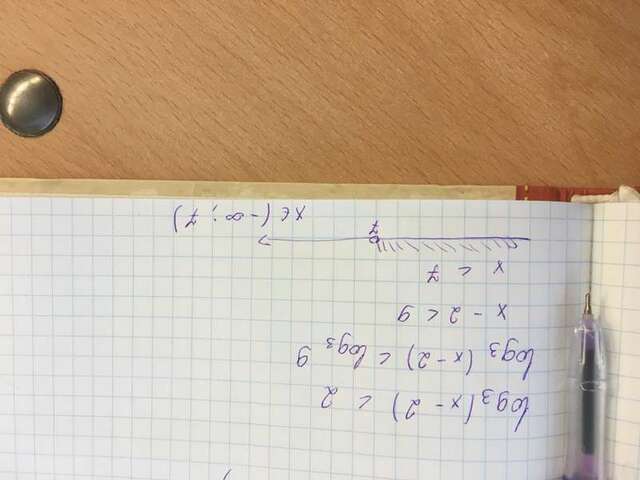 log₃(x-2) < 2
log₃(x-2) < log₃ 9
x - 2 < 9
x < 7
7
x ∈ (-∞; 7)